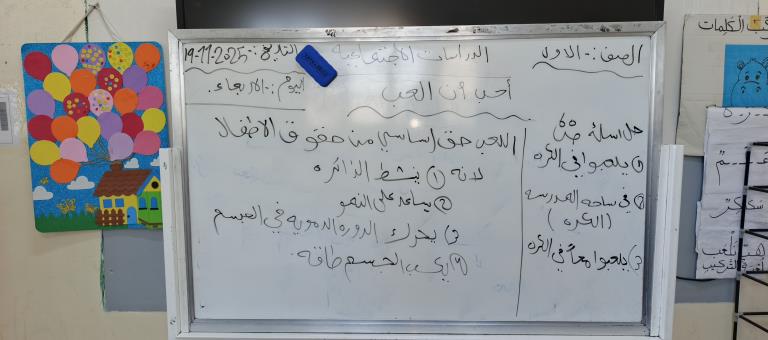 الصف :- الاول
الدراسات الاجتماعية
التاريخ :- 19-11-2025
اليوم :- الاربعاء .
أحب أن العب
اللعب حق اساسي من حقوق الاطفال
لانه ① ينشط الذاكره
② يساعد على النمو
③ يحرك الدوره الدمويه في الجسم
④ يكسب الجسم طاقة
حل اسئلة ص
① يلعبوا في الكره
② في ساحه المدرسه
(الكره)
③ يلعبوا معاً في الكره
الكلمات